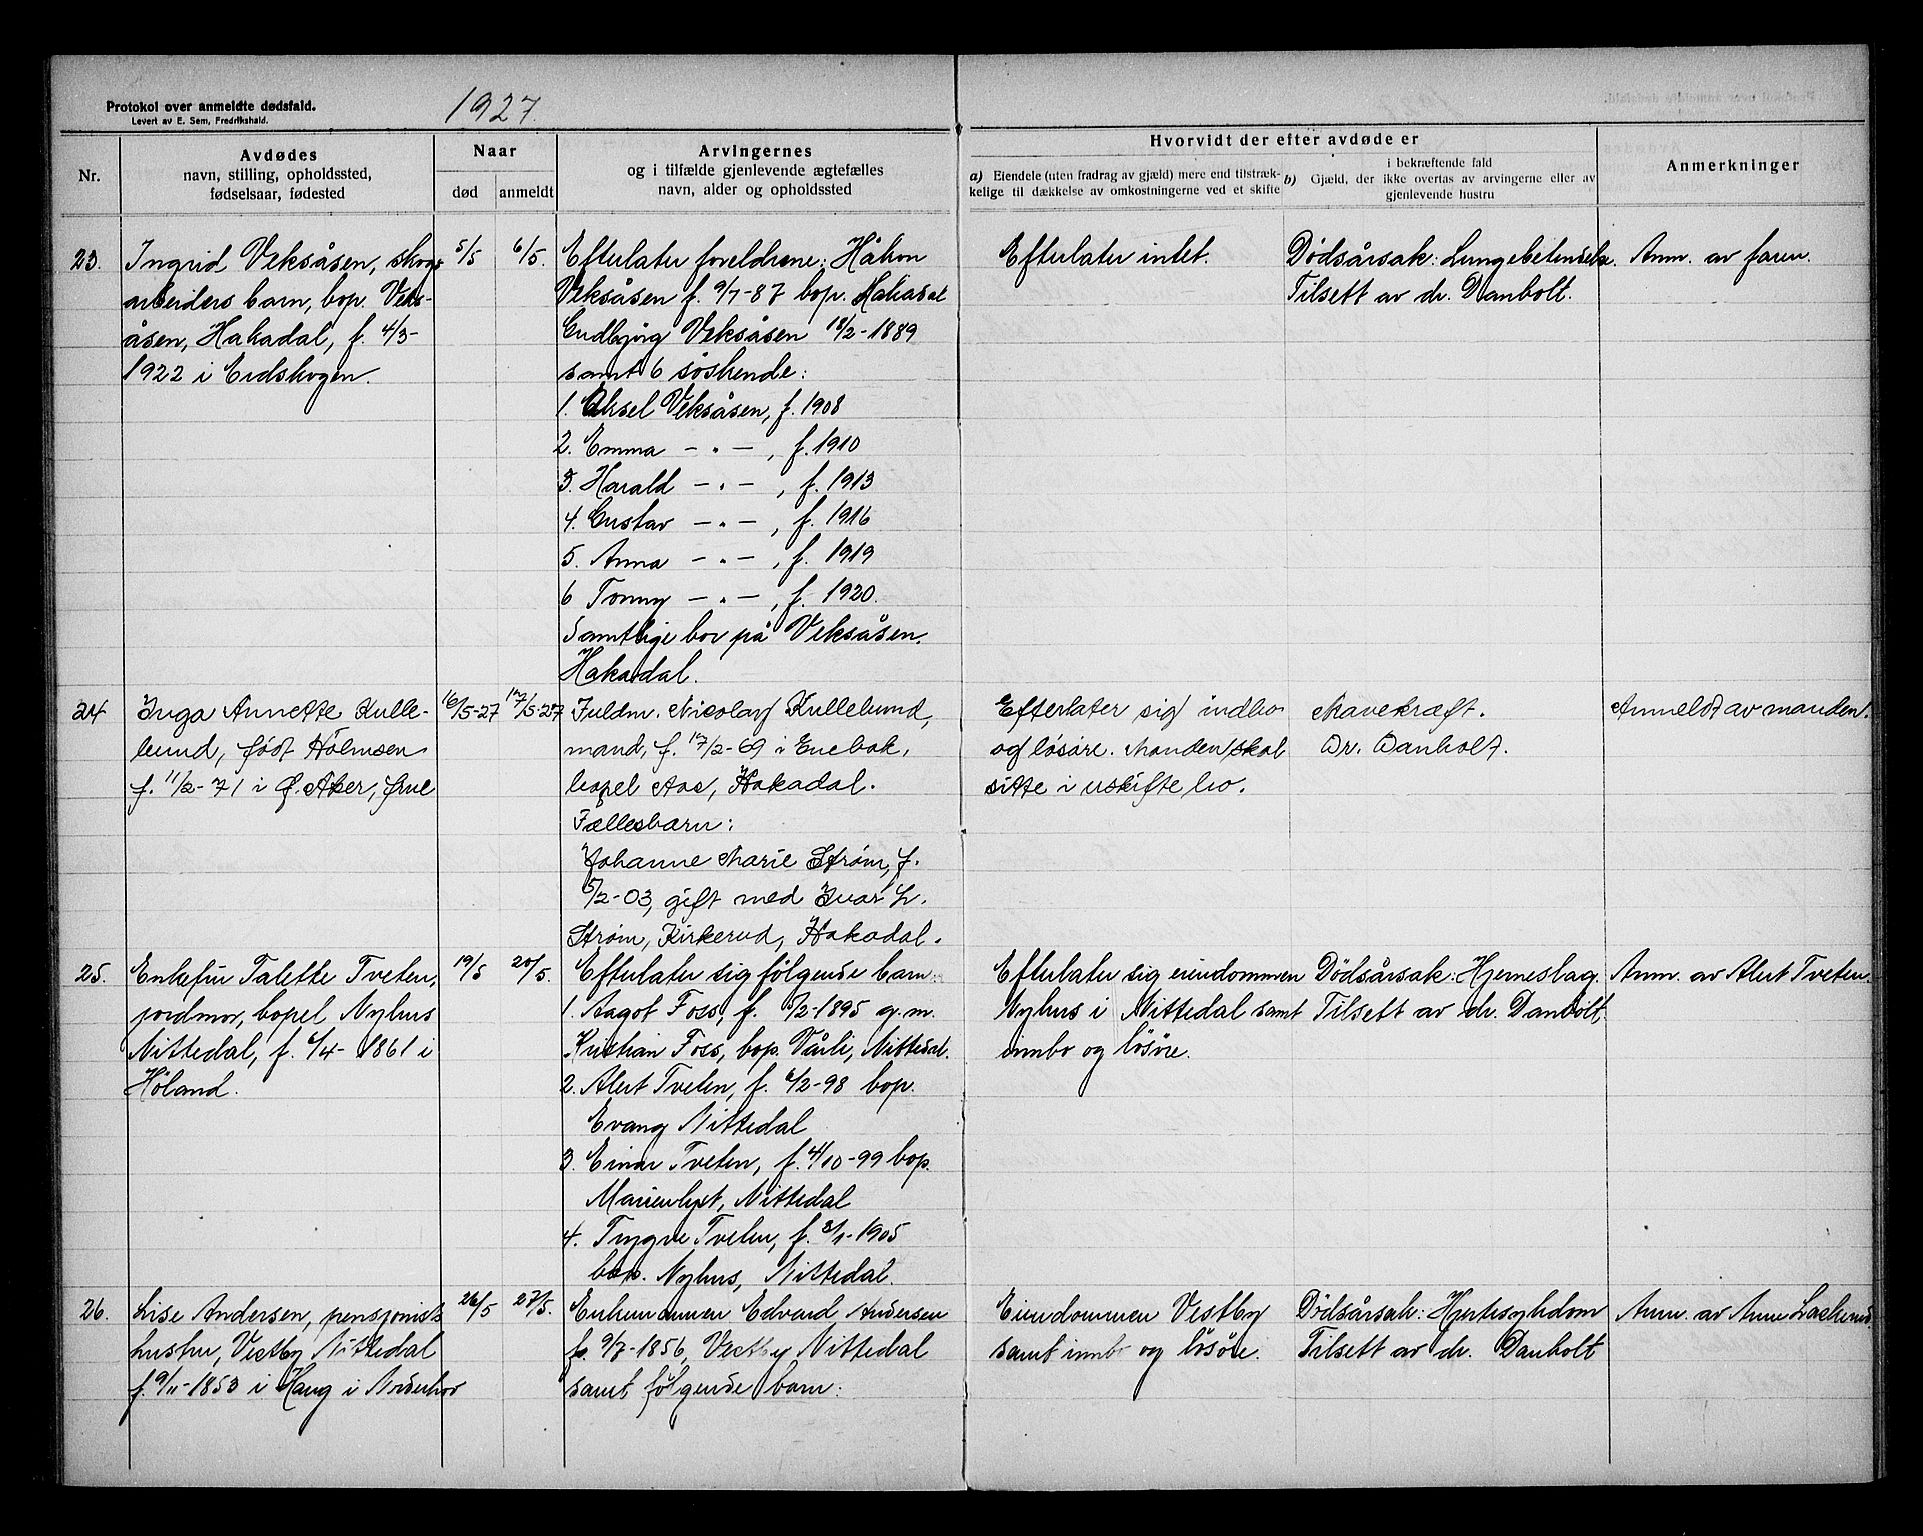 Protokol over anmeldte dødsfald.
Levert av E. Sem, Fredrikshald.
1927.
Nr.
Avdødes
navn, stilling, opholdssted,
fødselsaar, fødested
Naar
død
anmeldt
Arvingernes
og i tilfælde gjenlevende ægtefælles
navn, alder og opholdssted
Hvorvidt der efter avdøde er
a) Eiendele (uten fradrag av gjæld) mere end tilstræk-
kelige til dækkelse av omkostningerne ved et skifte
i bekræftende fald
b) Gjæld, der ikke overtas av arvingerne eller av
gjenlevende hustru
Anmerkninger
23.
Ingrid Veksåsen, skogs
arbeiders barn, bop. Veks-
åsen, Hakadal, f. 4/3-
1922 i Eidskogen.
5/5
6/5.
Efterlater foreldrene: Håkon
Veksåsen f. 9/7-87 bop. Hakadal
Gudbjørg Veksåsen 18/2-1889
samt 6 søskende:
1. Aksel Veksåsen, f. 1908
2. Emma - " - , f. 1910
3. Harald - " - , f. 1913
4. Gustav - " - , f. 1916
5. Anna - " - , f. 1919
6 Tonny - " - , f. 1920.
Samtlige bor på Veksåsen,
Hakadal.
Efterlater intet.
Dödsårsak: Lungebetendelse.
Tilsett av dr. Danbolt.
Anm. av faren.
24
Inga Annette Kulle-
lund, født Holmsen
f. 11/2-71 i Ø. Aker, frue
16/5-27
17/5-27
Fuldm. Nicolay Kullelund,
mand, f. 17/2-69 i Enebak,
bopel Aas, Hakadal.
Fællesbarn:
Johanne Marie Strøm, f.
5/2-03, gift med Ivar L.
Strøm, Kirkerud, Hakadal.
Efterlater sig indbo
og løsøre. Manden skal
sitte i uskifte bo.
Mavekræft.
Dr. Danbolt.
Anmeldt av manden.
25.
Enkefru Talette Tveten,
jordmor, bopel Nyhus
Nittedal, f. 6/4- 1861 i
Höland.
19/5
20/5.
Efterlater sig fölgende barn
1. Aagot Foss, f. /2-1895 g.m.
Kristian Foss, bop. Vårli, Nittedal.
2. Alert Tveten, f. 6/2-98 bop.
Evang Nittedal
3. Einar Tveten, f. 4/10-99 bop.
Marienlyst, Nittedal
4. Trygve Tveten, f. 8/1-1905
bop. Nyhus, Nittedal.
Efterlater sig eiendommen
Nyhus i Nittedal samt
innbo og lösöre.
Dödsårsak: Hjerneslag.
Tilsett av dr. Danbolt.
Anm. av Alert Tveten.
26.
Lise Andersen, pensjonists
hustru, Vestby Nittedal
f. 9/11-1853 i Haug i
26/5
27/5.
Enkemannen Edvard Andersen
f. 9/7-1856, Vestby Nittedal
samt fölgende barn:
Eiendommen Vestby
samt innbo og lösöre.
Dödsårsak: Hjertesykdom
Tilsett av dr. Danbolt
Anm. av Anne